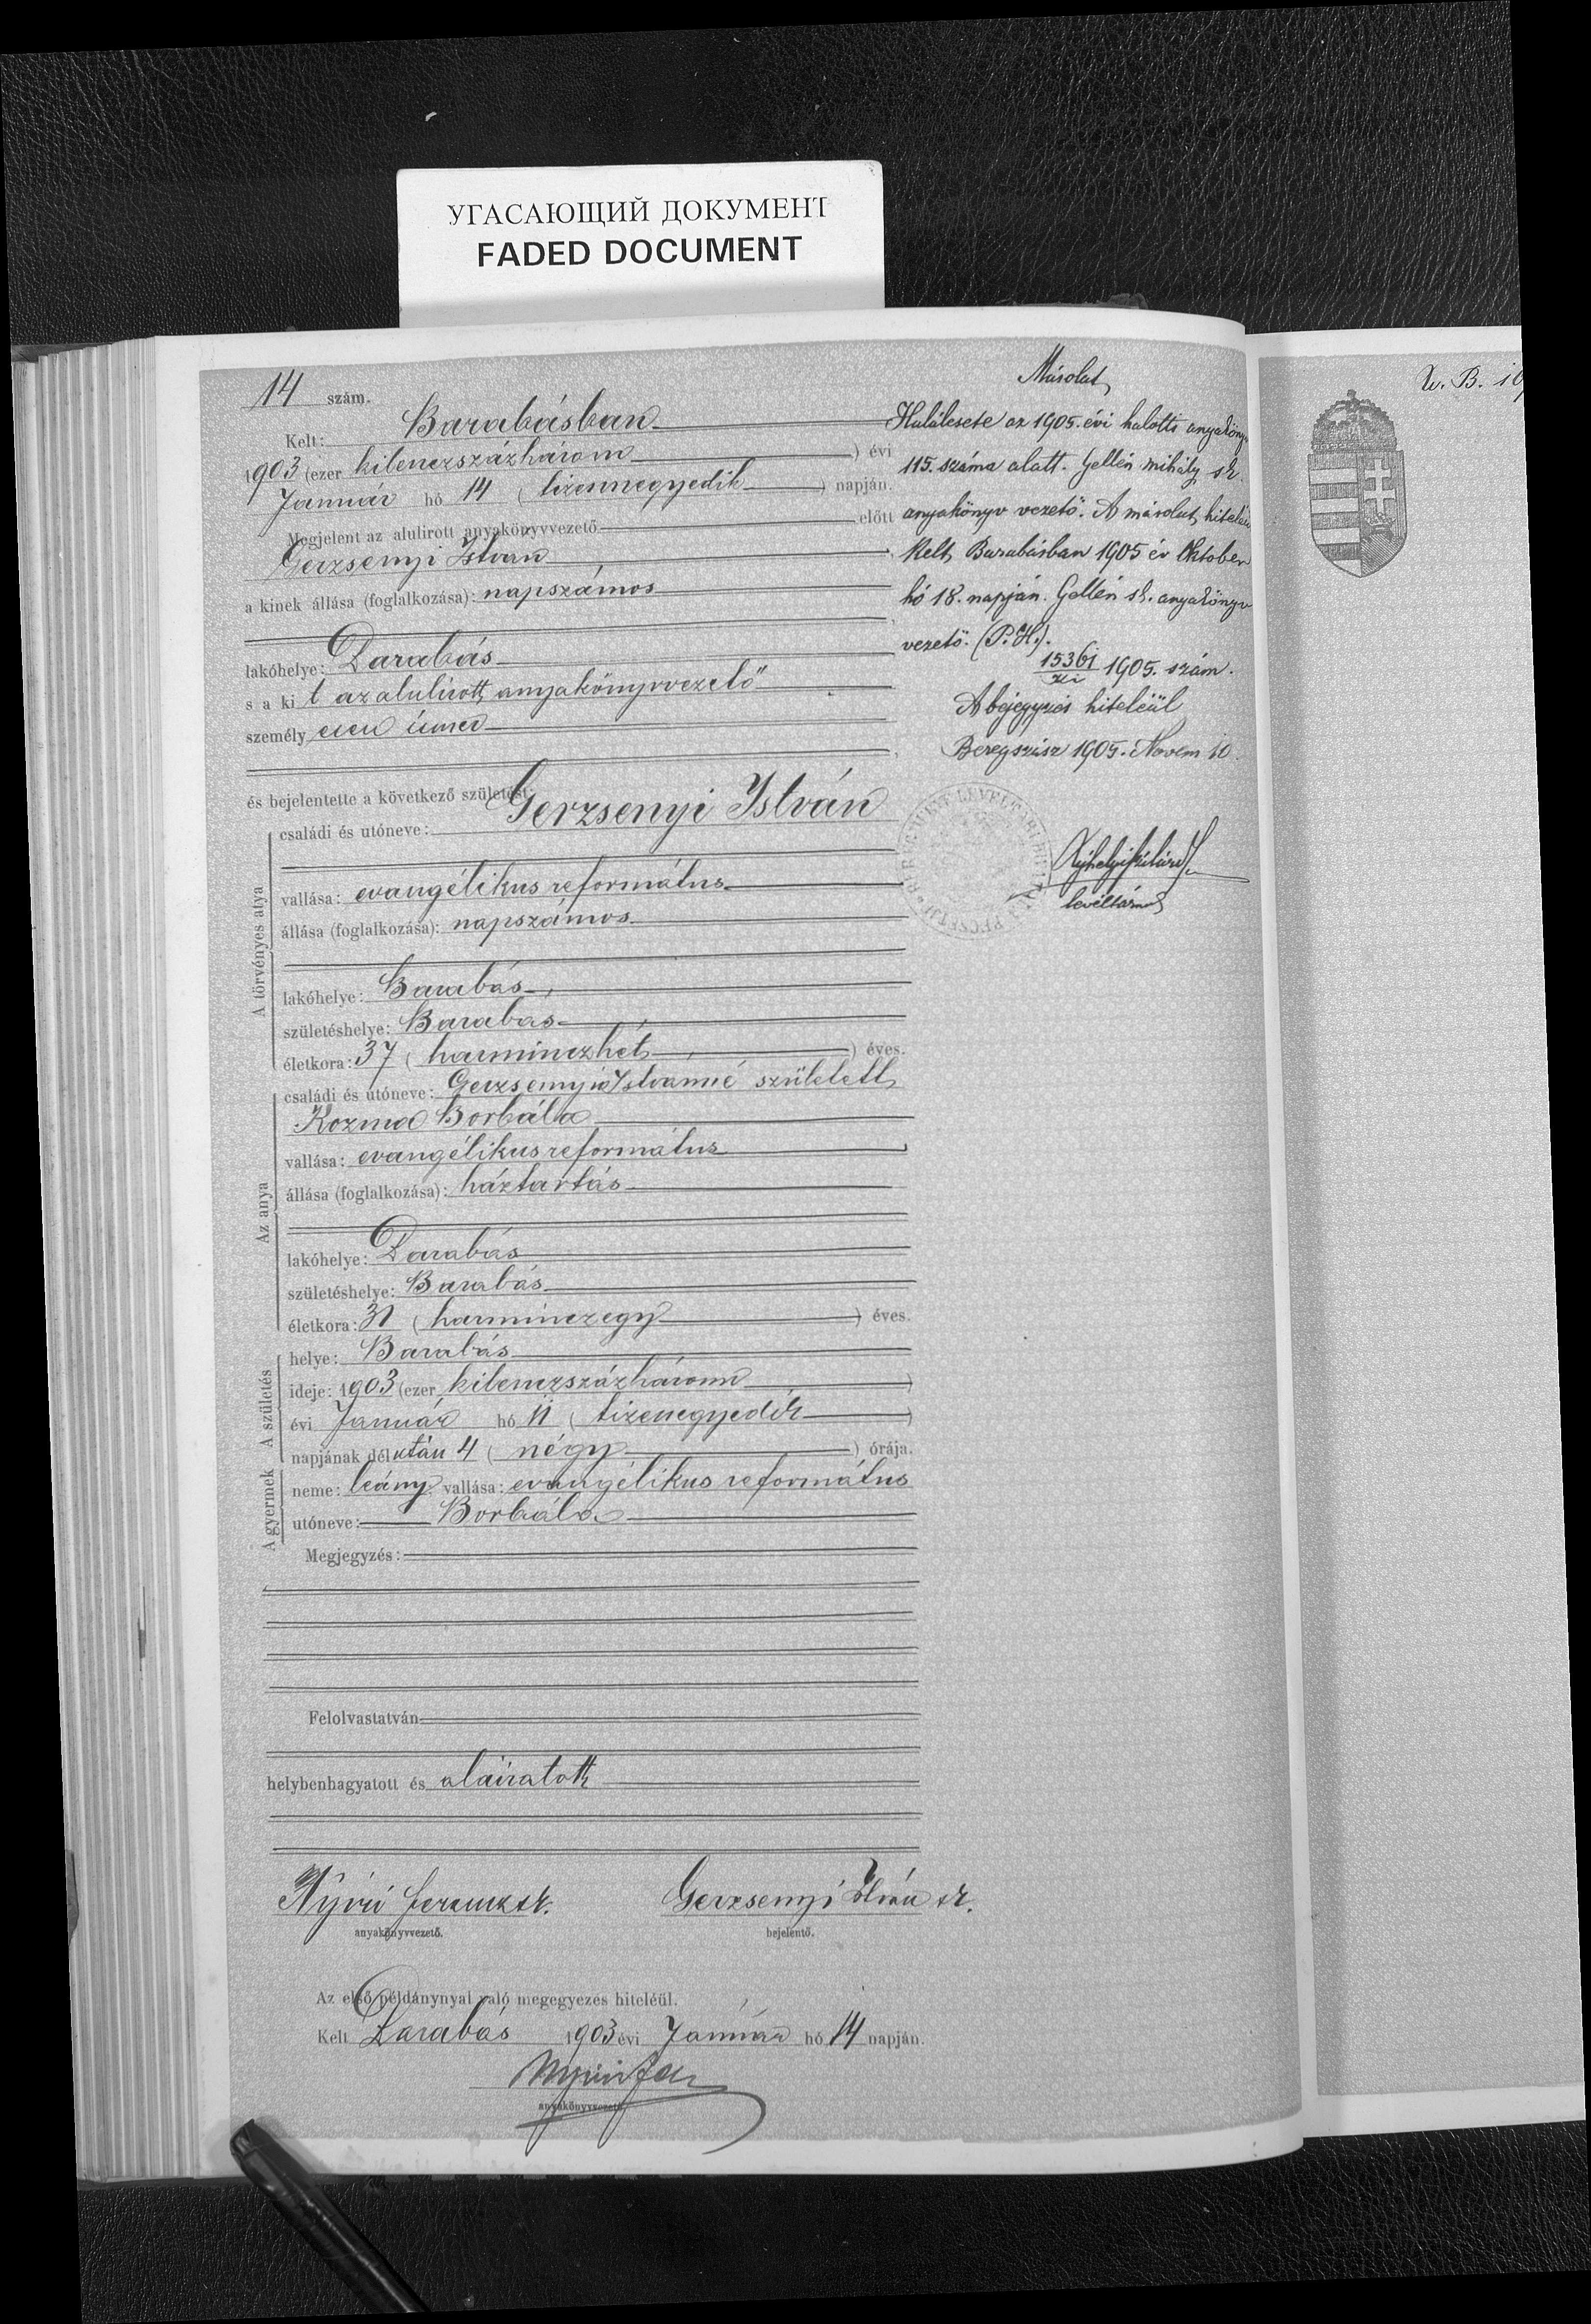 УГАСАЮЩИЙ ДОКУМЕНТ
FADED DOCUMENT
14 szám.
Kelt: Barabásban
1903 (ezer kilenczszázhárom) évi
Január hó 14 (tizennegyedik) napján.
Megjelent az alulirott anyakönyvvezető előtt
Gerzsenyi István
a kinek állása (foglalkozása): napszámos
lakóhelye: Barabás
s a kit az alulirott anyakönyvvezető
személyesen ismer
és bejelentette a következő születést:
A törvényes atya
családi és utóneve: Gerzsenyi István
vallása: evangélikus református
állása (foglalkozása): napszámos
lakóhelye: Barabás
születéshelye: Barabás
életkora: 37 (harminczhét) éves.
Az anya
családi és utóneve: Gerzsenyi Istvánné született
Kozma Borbála
vallása: evangélikus református
állása (foglalkozása): háztartás
lakóhelye: Barabás
születéshelye: Barabás
életkora: 31 (harminczegy) éves.
A születés
helye: Barabás
ideje: 1903 (ezer kilenczszázhárom)
évi Január hó 11 (tizenegyedik)
napjának délután 4 (négy) órája.
A gyermek
neme: leány vallása: evangélikus református
utóneve: Borbála
Megjegyzés:
Felolvastatván
helybenhagyatott és aláiratott
Nyirű Ferencz sk. Gerzsenyi István sk.
anyakönyvvezető. bejelentő.
Az első példánynyal való megegyezés hiteléül.
Kelt Barabás 1903 évi Január hó 14 napján.
anyakönyvvezető.
Másolat
Halálesete az 1905. évi halotti anyaköny
115. száma alatt. Gellén Mihály sk.
anyakönyv vezető. A másolat hiteléü
Kelt, Barabásban 1905 év Oktober
hó 18. napján. Gellén sk. anyakönyv
vezető. (P. H.).
15361 1905. szám.
A bejegyzés hiteléül
Beregszász 1905. Novem 10.
levéltárnok